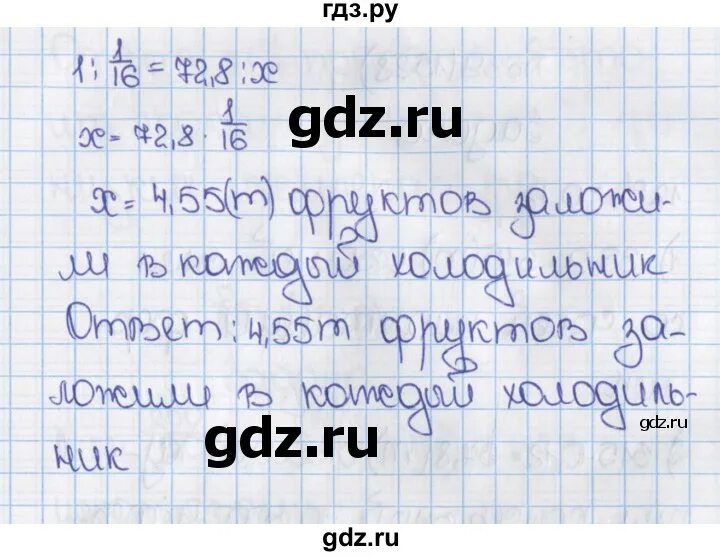 гдз.ру
1 : 1/16 = 72,8 : x
gdz.ru
x = 72,8 · 1/16
x = 4,55(т) фруктов заложи-
ли в каждый холодильник
Ответ: 4,55т фруктов за-
ложили в каждый холодиль-
gdz.ru
gdz.ru
ник
gdz.ru